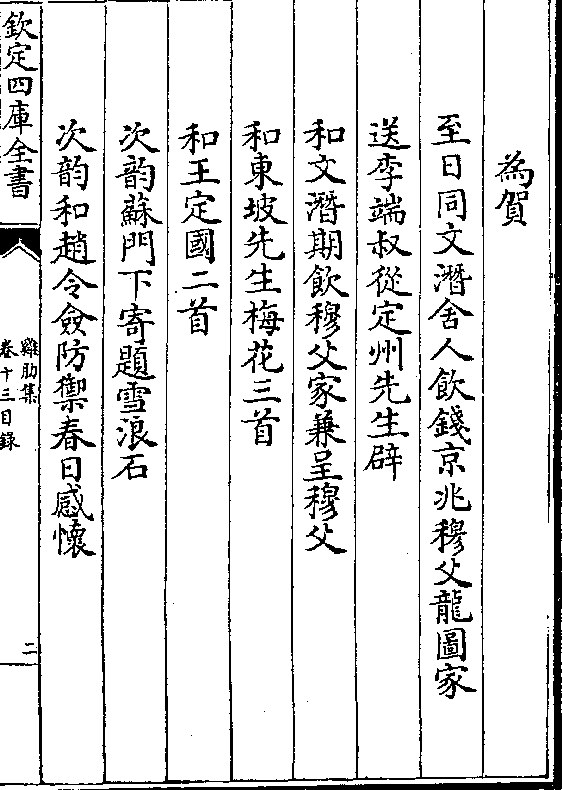 為賀
至日同文潛舍人飲錢京兆穆父龍圖家
送李端叔從定州先生辟
和文潛期飲穆父家兼呈穆父
和東坡先生梅花三首
和王定國二首
次韵蘇門下寄題雪浪石
次韵和趙令僉防禦春日感懷
欽定四庫全書
雞肋集
卷十三目錄
二